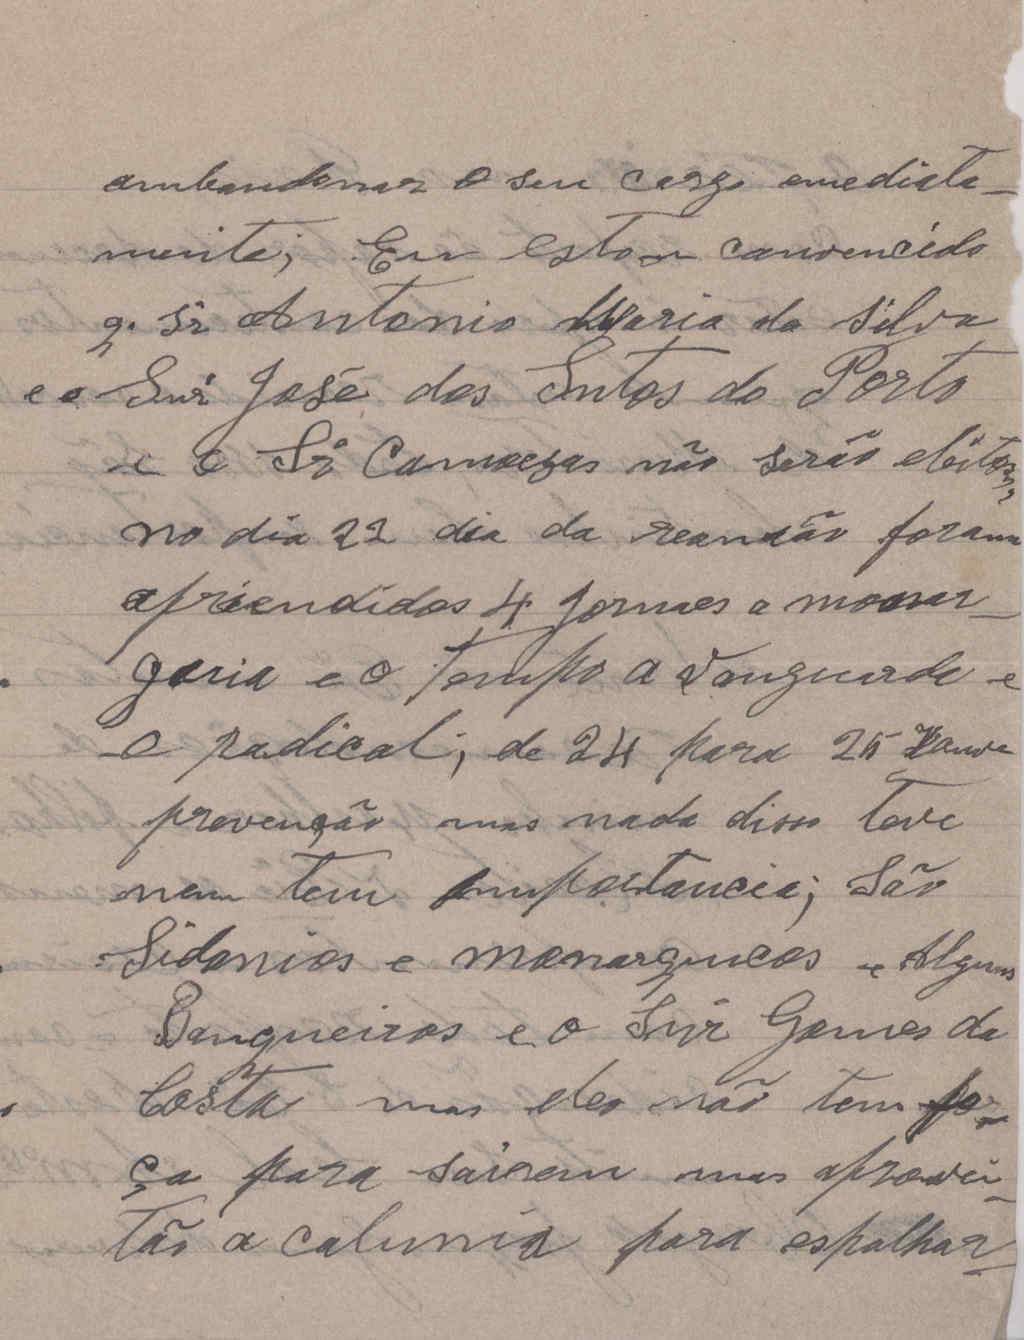 ambandonar o seu cargo emediata-
mente; Eu estou convencido
q. Sr Antonio Maria da Silva
e o Snr José dos Sntos do Porto
e o Sr Camoezas não serão eleitos
no dia 22 dia da reanião foram
apriendidos 4 jornaes a monar-
garia e o Tempo a Vanguarda e
o radical; de 24 para 25 houve
prevenção mas nada disso teve
nem tem emportancia; São
Sidonios e monarquicos e Alguns
Banqueiros e o Snr Gomes da
Costa mas eles não tem for-
ça para sairem mas aprovei-
tão a calunia para espalhar